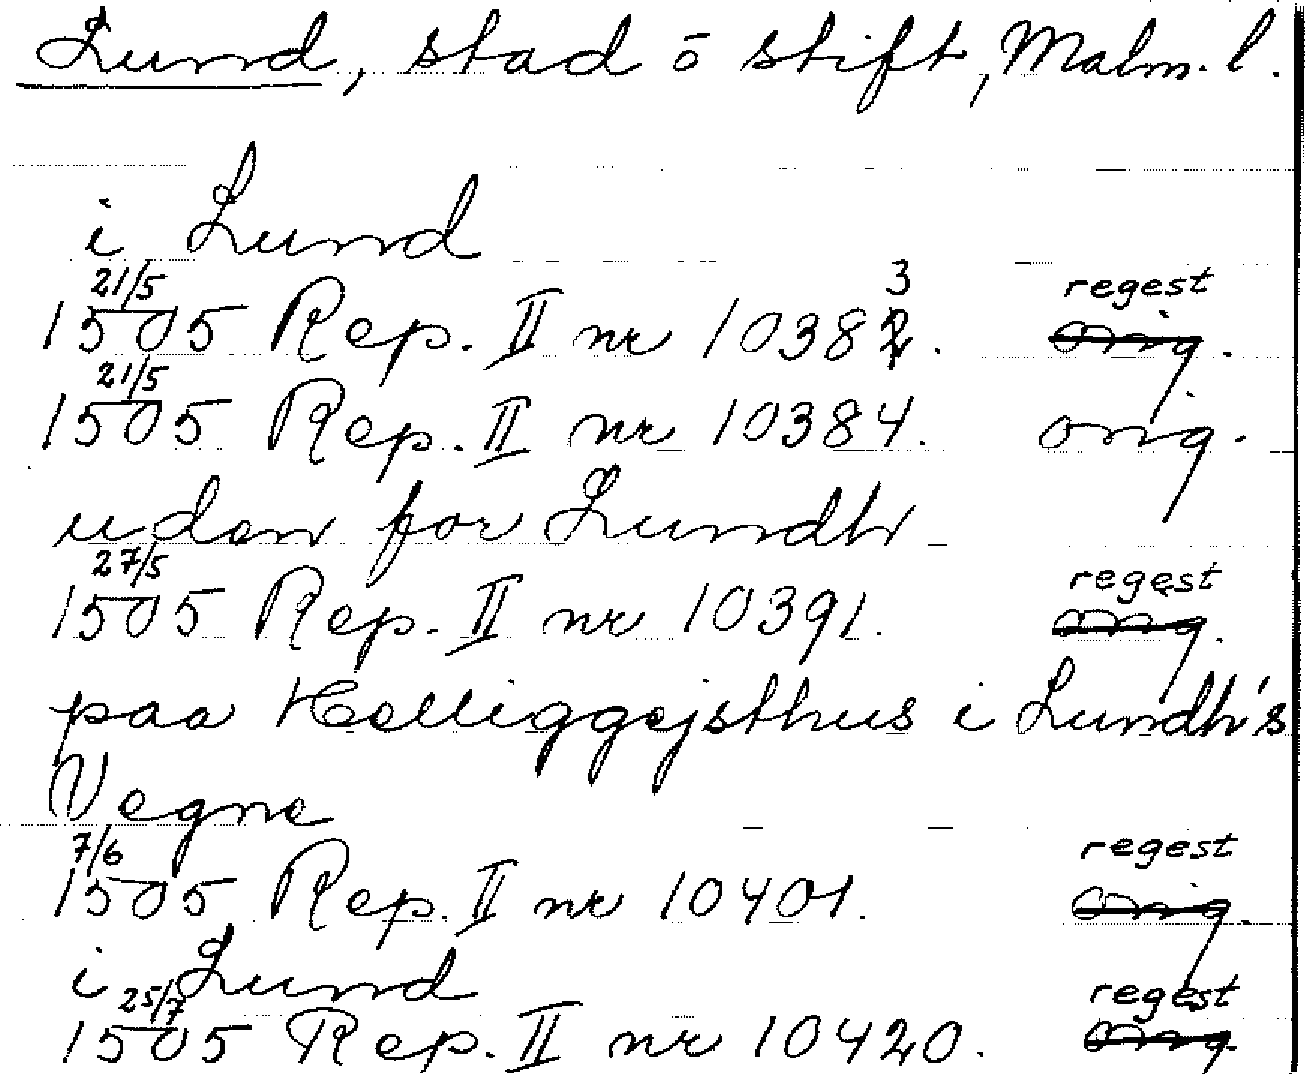 Lund, stad o stift, Malm. l.
i Lund
21/5 3 regest
1505 Rep. II nr 10382. orig.
21/5
1505 Rep. II nr 10384. orig.
uden for Lundh
27/5 regest
1505 Rep. II nr 10391. orig.
paa Helliggejsthus i Lundh's
Vegne
7/6 regest
1505 Rep. II nr 10401. orig.
i Lund
25/7 regest
1505 Rep. II nr 10420. orig.